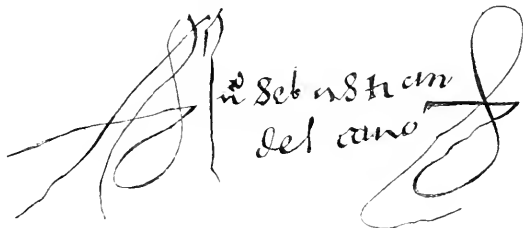 Ju° Sebastian
del cano